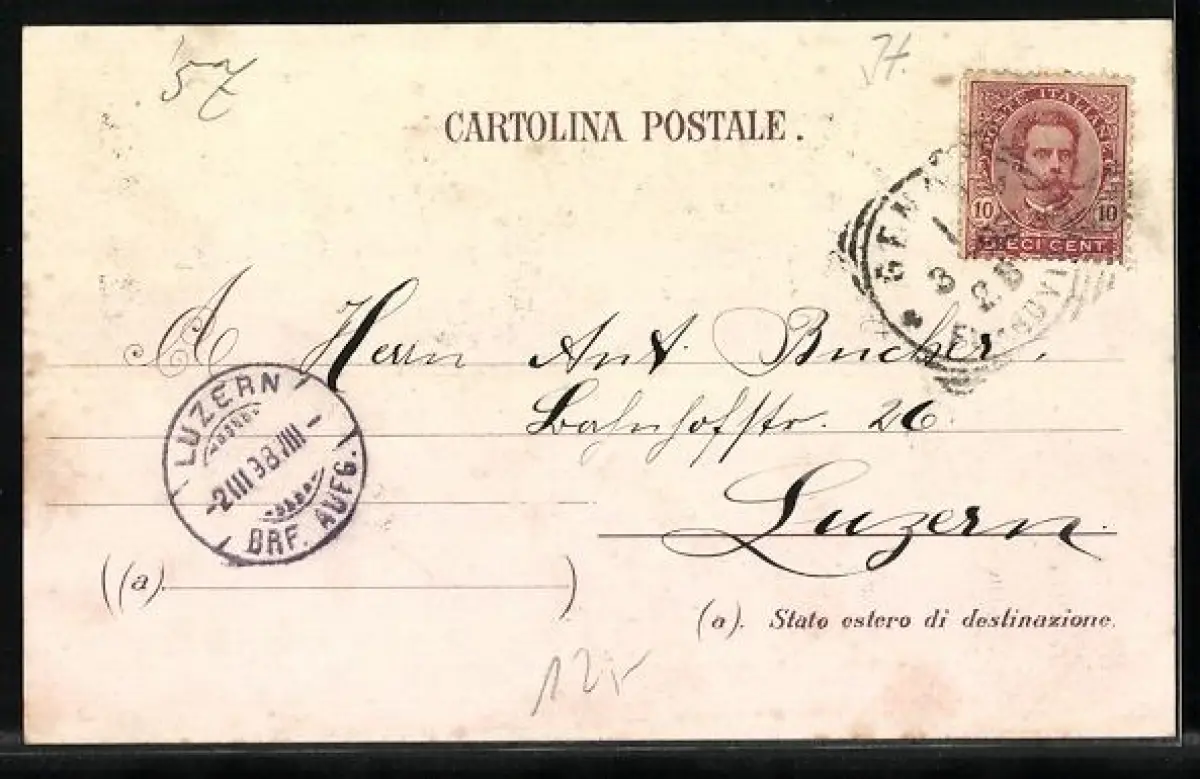 57
It.
CARTOLINA POSTALE.
POSTE ITALIANE
10 10
DIECI CENT.
3 98
A Herrn Ant. Bucher,
Bahnhofstr. 26
Luzern.
LUZERN
-2 III 98 VIII-
BRF. AUFG.
(a).
(a). Stato estero di destinazione.
12,-